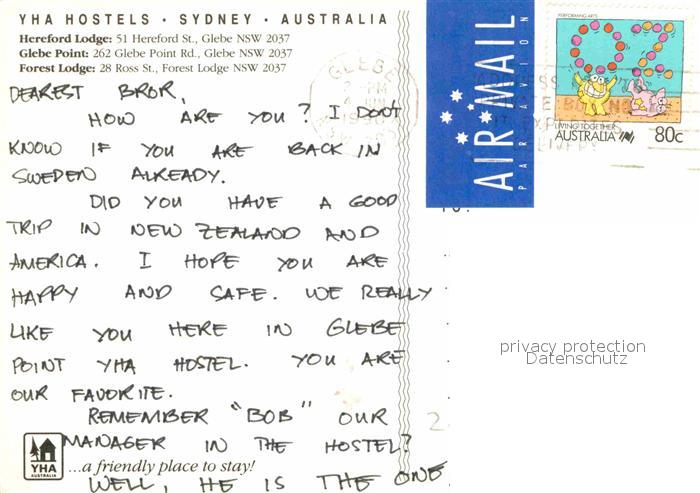 YHA HOSTELS · SYDNEY · AUSTRALIA
Hereford Lodge: 51 Hereford St., Glebe NSW 2037
Glebe Point: 262 Glebe Point Rd., Glebe NSW 2037
Forest Lodge: 28 Ross St., Forest Lodge NSW 2037
DEAREST BROR,
HOW ARE YOU? I DON'T
KNOW IF YOU ARE BACK IN
SWEDEN ALREADY.
DID YOU HAVE A GOOD
TRIP IN NEW ZEALAND AND
AMERICA. I HOPE YOU ARE
HAPPY AND SAFE. WE REALLY
LIKE YOU HERE IN GLEBE
POINT YHA HOSTEL. YOU ARE
OUR FAVORITE.
REMEMBER "BOB" OUR
MANAGER IN THE HOSTEL?
WELL, HE IS THE ONE
YHA
AUSTRALIA
...a friendly place to stay!
GLEBE
PM
AIR MAIL
PAR AVION
PERFORMING ARTS
LIVING TOGETHER
AUSTRALIA 80c
privacy protection
Datenschutz
2